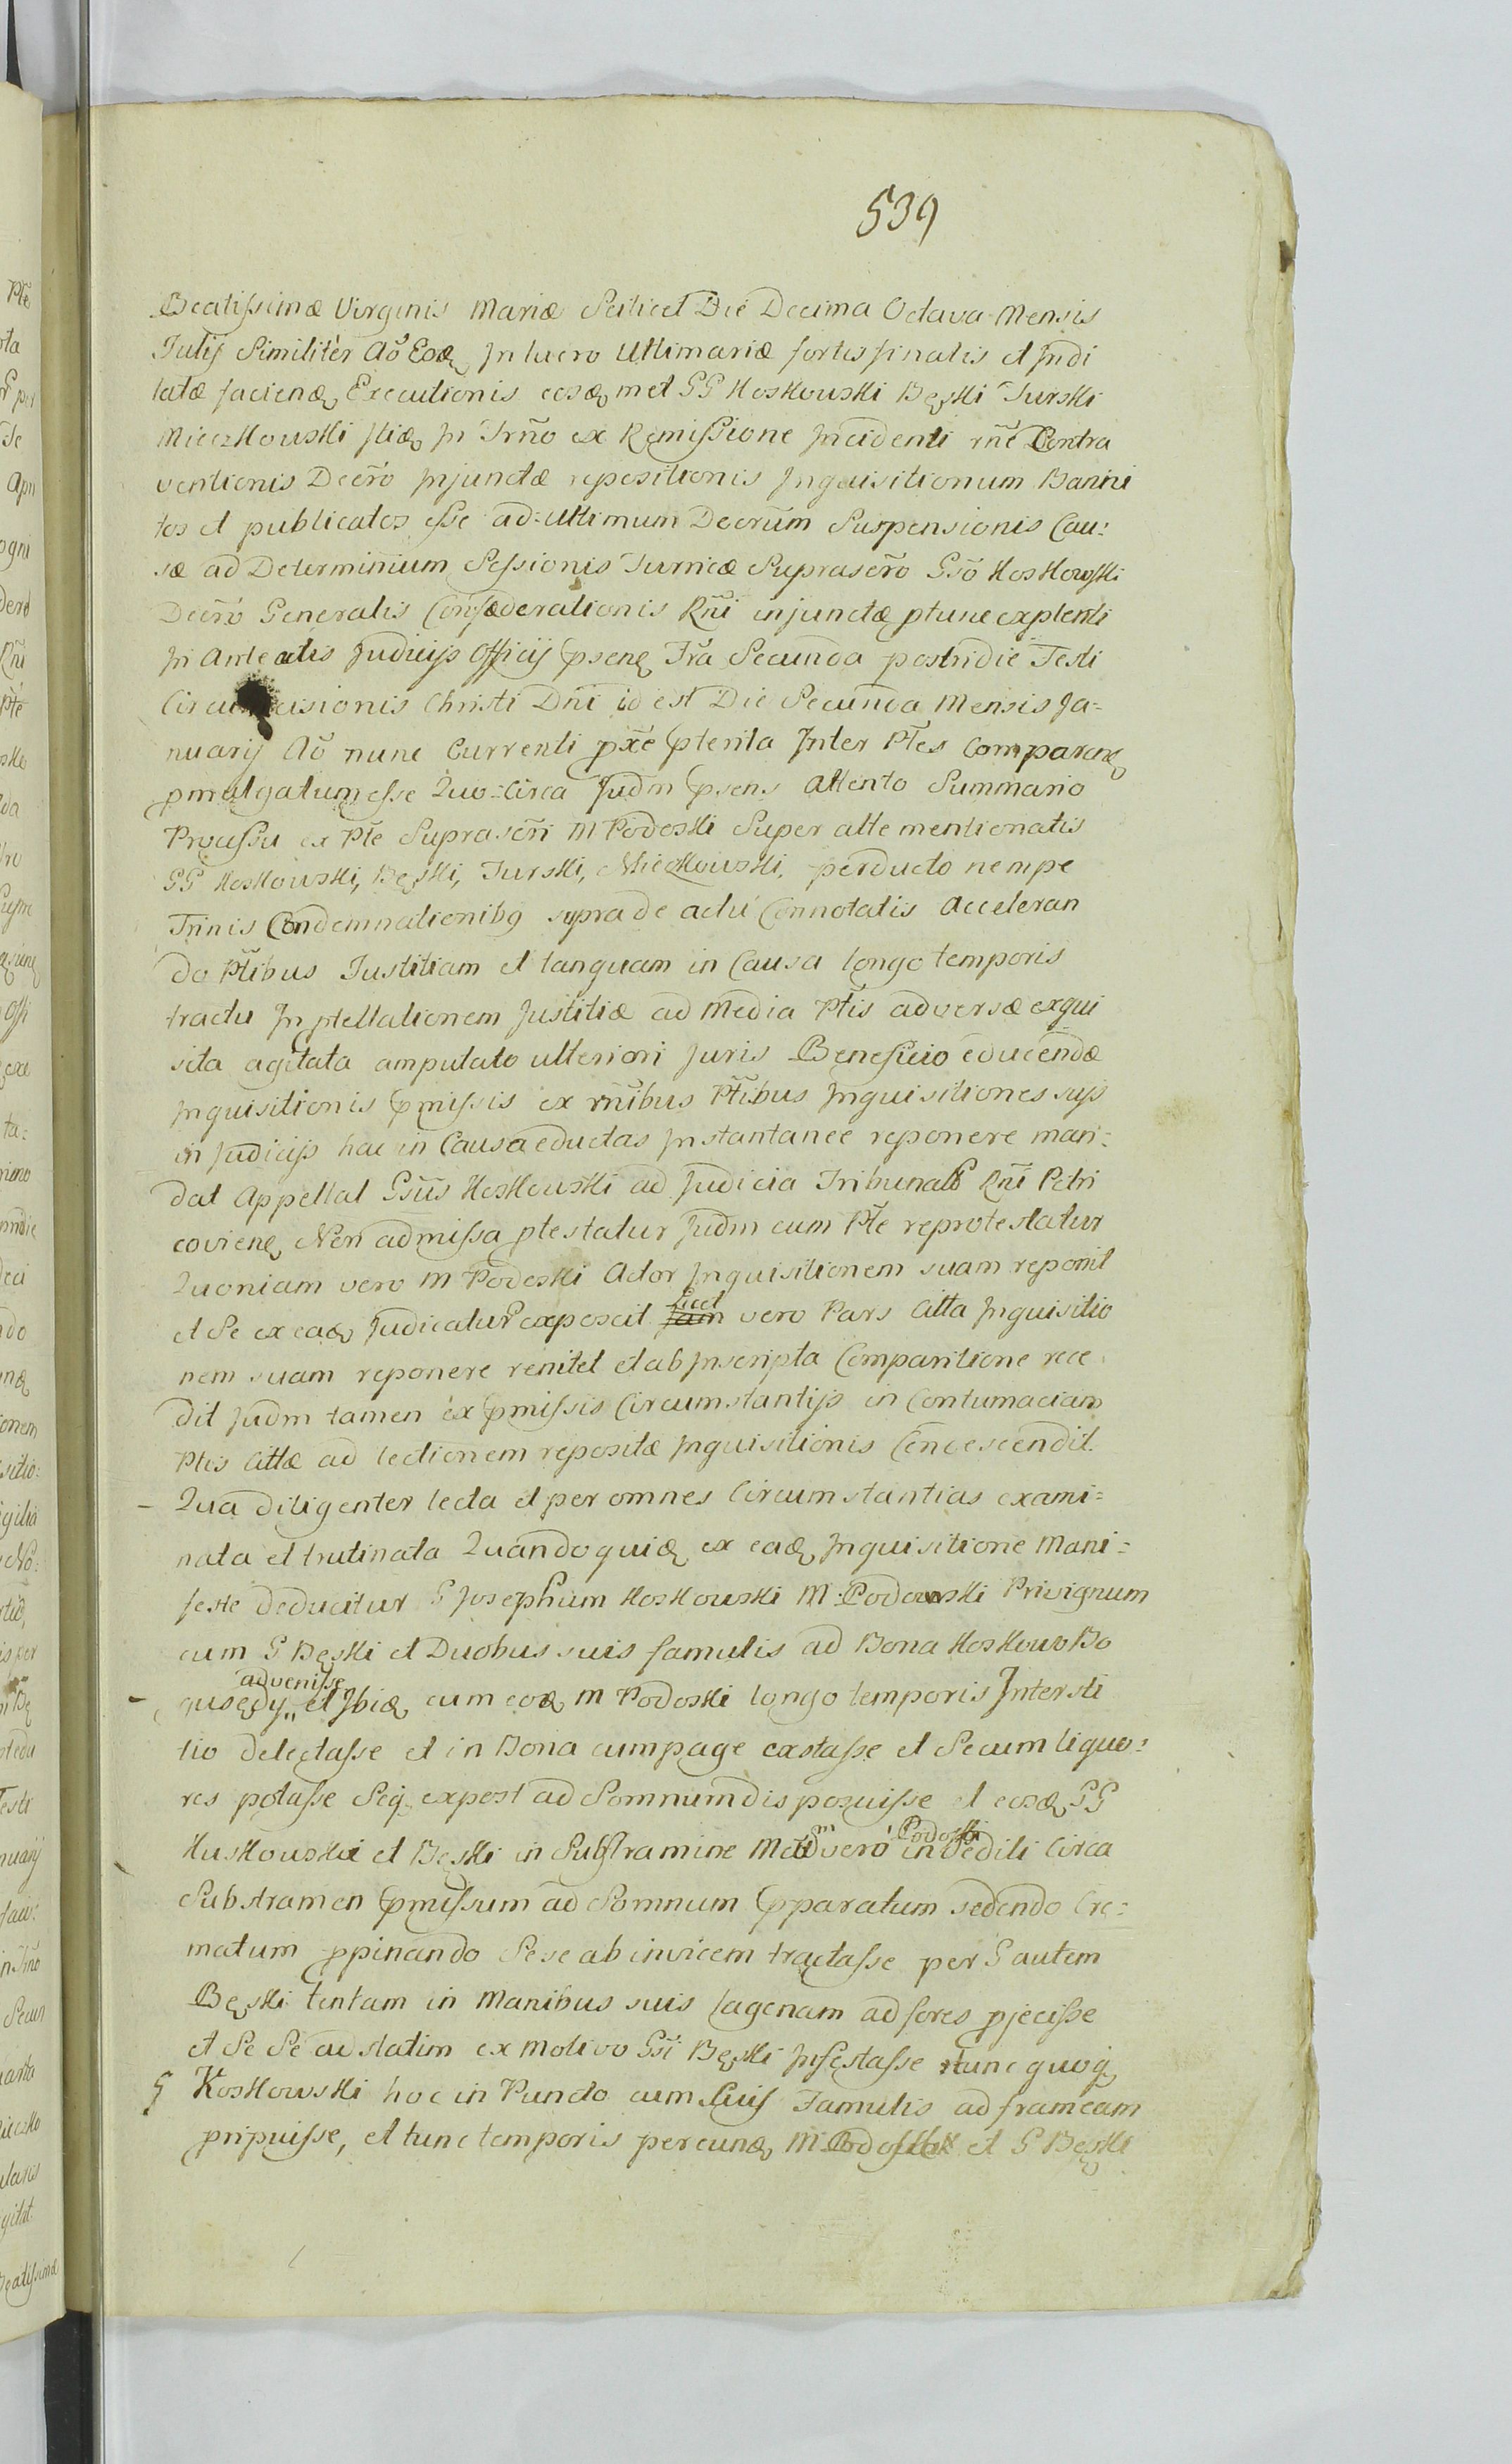 539
Beatissimæ Virginis Mariæ Scilicet Die Decima Octava Mensis
Julij Similitèr Aõ Eođ In lucro Ultimariæ sortis finalis et Indi
latæ faciendæ Executionis eosđ met GG Koskowski Bęski Turski
Mieczkowski Itiđ In Trño ex Remissione Incidenti rñe Contra
ventionis Decrõ Injunctæ repositionis Inquisitionum Banni
tos et publicatos esse ad Ultimum Decrum Suspensionis Cau:
sæ ad Determinium Sessionis Turnicæ Suprascrõ Gsõ Koskowski
Decrõ Generalis Confæderationis Rñi injunctæ ptunc explenti
In Anteatis Judicijs Officij psenę Fra Secunda postridie Festi
Circumcisionis Christi Dñi id est Die Secunda Mensis Ja-
nuarij Aõ nunc Currenti pxe pterita Inter Ptes Comparenę
pmulgatum esse Quo-Circa Judm psens Attento Summario
Processu ex Pte Suprascri M Podoski Super atte mentionatis
GG Koskowski, Bęski, Turski, Mieczkowski, perducto nempe
Trinis Condemnationibg supra de actu Connotatis Acceleran
do Ptibus Justitiam et tanquam in Causa longo temporis
tractu In ptellationem Justitiæ ad Media Ptis adversæ exqui
sita agitata amputato ulteriori Juris Beneficio educendæ
Inquisitionis pmissis ex rñibus Ptibus Inquisitiones suas
in Judicijs hac in Causa eductas Instantanee reponere man:
dat Appellat Gsus Koskowski ad Judicia Tribunals Rñi Petri
covienę Non admissa ptestatur Judm cum Pte reprotestatur
Quoniam vero M Podoski Actor Inquisitionem suam reponit
et Se ex eađ Judicatur exposcit Licet vero Pars Citta Inquisitio
nem suam reponere renitet et ab Inscripta Comparitione rece
dit Judm tamen ex pmissis Circumstantijs in Contumaciam
Ptis Cittæ ad lectionem repositæ Inquisitionis Condescendit.
Qua diligenter lecta et per omnes Circumstantias exami=
nata et trutinata Quandoquiđ ex eađ Inquisitione Mani=
feste deducitur G Josephum Koskowski M Podowski Privignum
cum G Bęski et Duobus suis famulis ad Bona Koskowo Bo
gusędy advenisse et Ibiđ cum eođ M Podoski longo temporis Intersti
tio delectasse et in Bona cumpage exstasse et Secum liquo:
res potasse Seq expost ad Somnum disposuisse et eosđ GG
Kuskowski et Bęski in Substramine Mdum vero Podoski in Sedili Circa
Substramen pmissum ad Somnum pparatum sedendo Cre=
matum ppinando Sese ab invicem tractasse per G autem
Bęski tentam in Manibus suis lagenam ad fores pjecisse
et Se Se ac statim ex Motivo Gsi Bęski Infestasse tunc quoq
G Koskowski hoc in Puncto cum Suis Famulis ad frameam
pripuisse, et tunc temporis per eunđ M Podoski et G Bęski